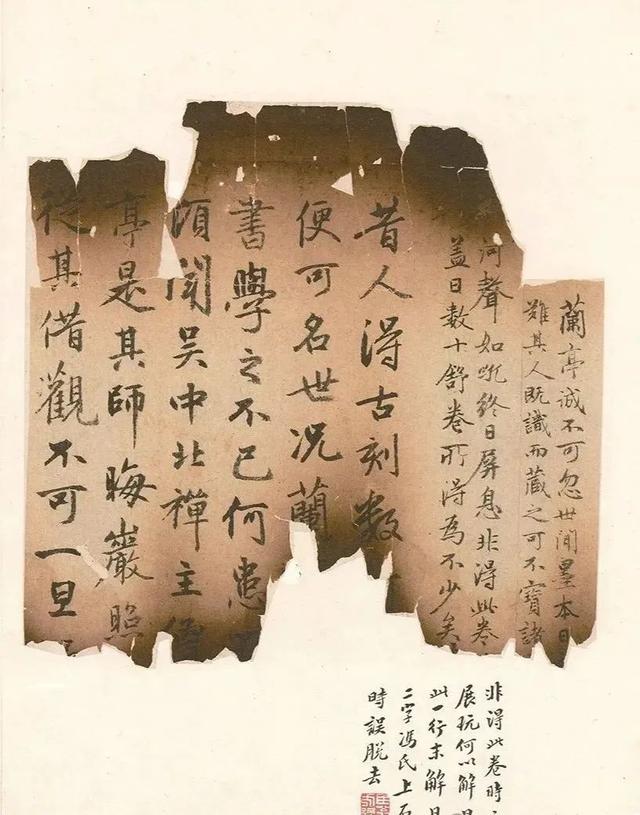 蘭亭誠不可忽世間墨本日
難其人既識而藏之可不寶諸
河聲如吼終日屏息非得此卷
蓋日數十舒卷所得為不少矣
昔人得古刻數
便可名世况蘭
書學之不已何患
頃聞吳中北禪主僧
亭是其師晦巖照
從其借觀不可一旦
非得此卷時
展玩何以解日
此一行末解日
二字馮氏上石
時誤脫去